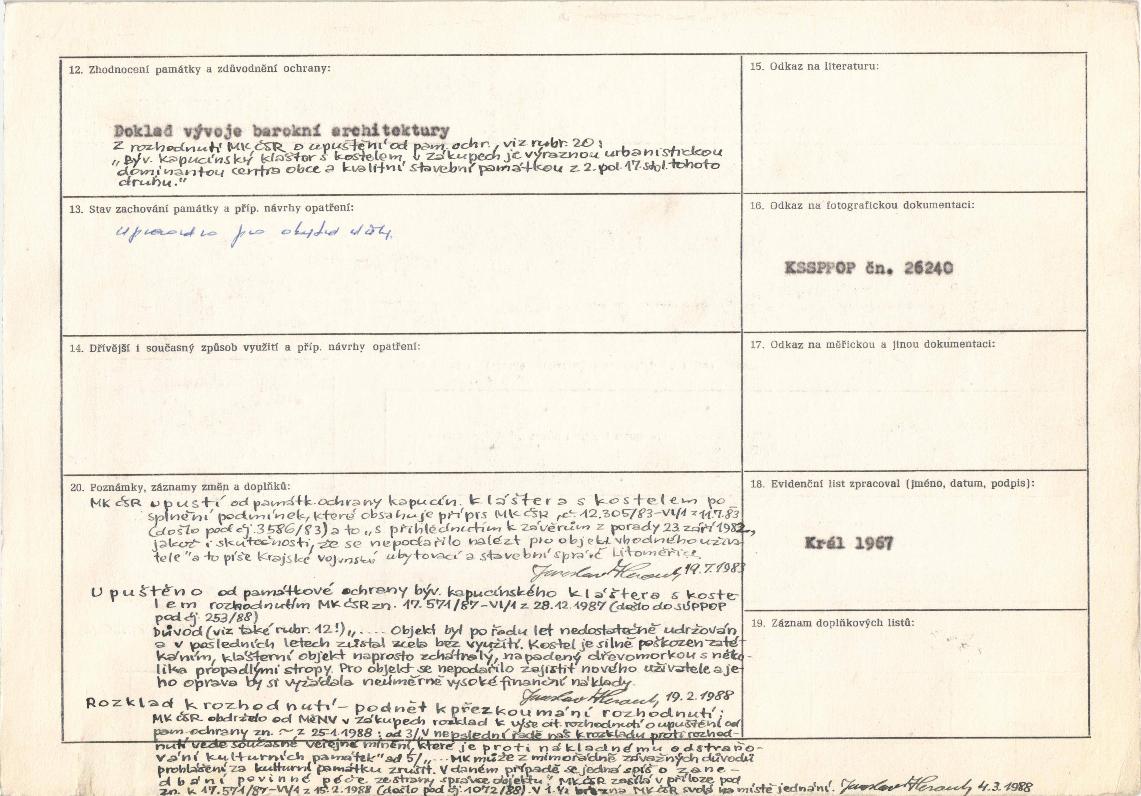 12. Zhodnocení památky a zdůvodnění ochrany:
Doklad vývoje barokní architektury
Z rozhodnutí MK ČSR o upuštění od pam. ochr., viz rubr. 20:
„Býv. kapucínský klášter s kostelem v Zákupech je výraznou urbanistickou
dominantou centra obce a kvalitní stavební památkou z 2. pol. 17. stol. tohoto
druhu."
13. Stav zachování památky a příp. návrhy opatření:
pro
14. Dřívější i současný způsob využití a příp. návrhy opatření:
20. Poznámky, záznamy změn a doplňků:
MK ČSR upustí od památk. ochrany kapucín. kláštera s kostelem po
splnění podmínek, které obsahuje přípis MK ČSR č. 12.305/83-VI/1 z 11.7.83
(došlo pod čj. 3586/83) a to „s přihlédnutím k závěrům z porady 23 září 1982,
jakož i skutečnosti, že se nepodařilo nalézt pro objekt vhodného uživa-
tele" a to píše Krajské vojenské ubytovací a stavební správě Litoměřice.
19.7.1983
Upuštěno od památkové ochrany býv. kapucínského kláštera s koste-
lem rozhodnutím MK ČSR zn. 17.571/87-VI/1 z 28.12.1987 (došlo do SÚPPOP
pod čj. 253/88)
Důvod (viz také rubr. 12!) „..... Objekt byl po řadu let nedostatečně udržován
a v posledních letech zůstal zcela bez využití. Kostel je silně poškozen zaté-
káním, klášterní objekt naprosto zchátralý, napadený dřevomorkou s něko-
lika propadlými stropy. Pro objekt se nepodařilo zajistit nového uživatele a je-
ho oprava by si vyžádala neúměrně vysoké finanční náklady.
19.2.1988
Rozklad k rozhodnutí - podnět k přezkoumání rozhodnutí:
MK ČSR obdrželo od MěNV v Zákupech rozklad k výše cit. rozhodnutí o upuštění od
pam. ochrany zn. ~ z 25.1.1988: ad 3/„V neposlední řadě náš k rozkladu proti rozhod-
nutí vede současné veřejné mínění, které je proti nákladnému odstraňo-
vání kulturních památek" ad 5/„... MK může z mimořádně závažných důvodů
prohlášení za kulturní památku zrušit. V daném případě se jedná spíš o zane-
dbání povinné péče ze strany správce objektu" MK ČSR zasílá v příloze pod
zn. k 17.571/87-VI/1 z 15.2.1988 (došlo pod čj. 1072/88). března MK ČSR svolá na místě jednání. 4.3.1988
15. Odkaz na literaturu:
16. Odkaz na fotografickou dokumentaci:
KSSPPOP čn. 26240
17. Odkaz na měřickou a jinou dokumentaci:
18. Evidenční list zpracoval (jméno, datum, podpis):
Král 1967
19. Záznam doplňkových listů: